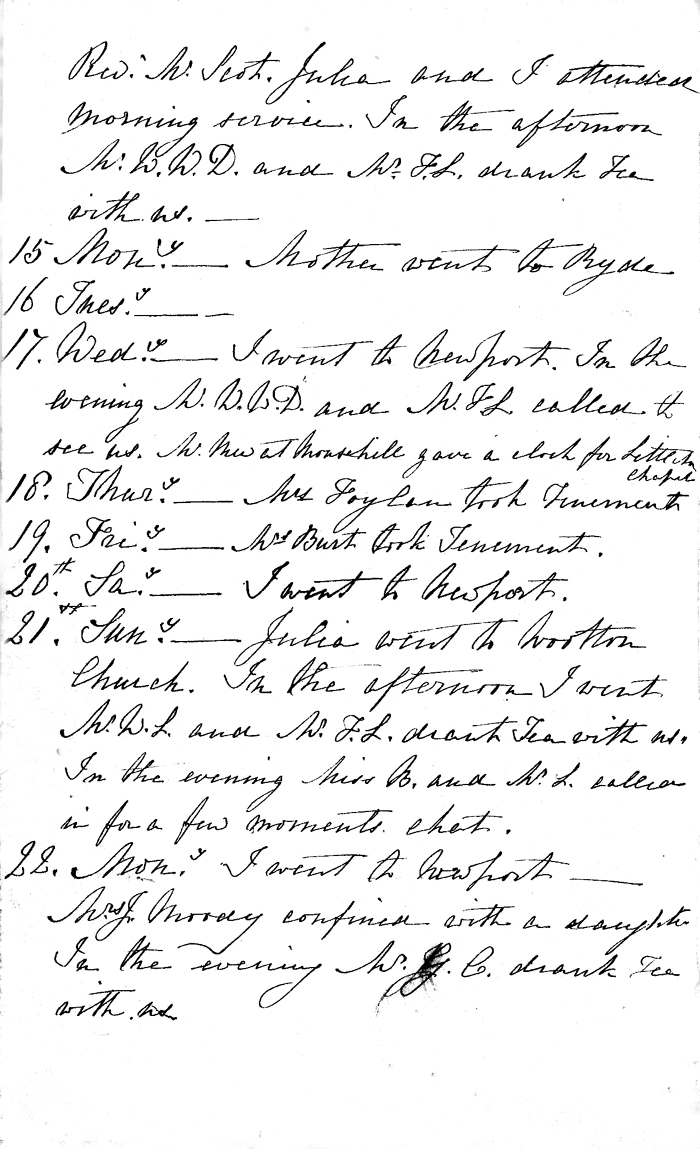 Revd. Mr. Scot. Julia and I attended
morning service. In the afternoon
Mr. W. W. D. and Mr. F. L. drank Tea
with us. —
15 Mon.y — Mother went to Ryde
16 Tues.y — —
17. Wed.y — I went to Newport. In the
evening Mr. W. W. D. and Mr. F L called to
see us. Mr. New at Mousehill gave a clock for
chapel
18. Thur.y — Mrs Foylan took Tenement
19. Fri.y — Mrs Burt took Tenement.
20th Sa.y — I went to Newport.
21.st Sun.y — Julia went to Wootton
Church. In the afternoon I went
Mr. W. L. and Mr. F. L. drank Tea with us.
In the evening Miss B. and Mr. L. called
in for a few moments chat.
22. Mon.y I went to Newport —
Mrs J. Moody confined with a daughter
In the evening Mr. G. C. drank Tea
with us